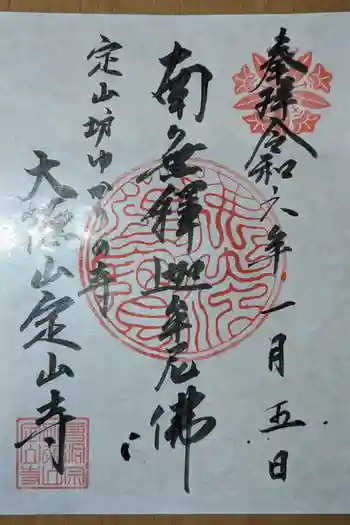 奉拝令和六年一月五日
南無釋迦牟尼佛
定山坊ゆかりの寺
大德山定山寺